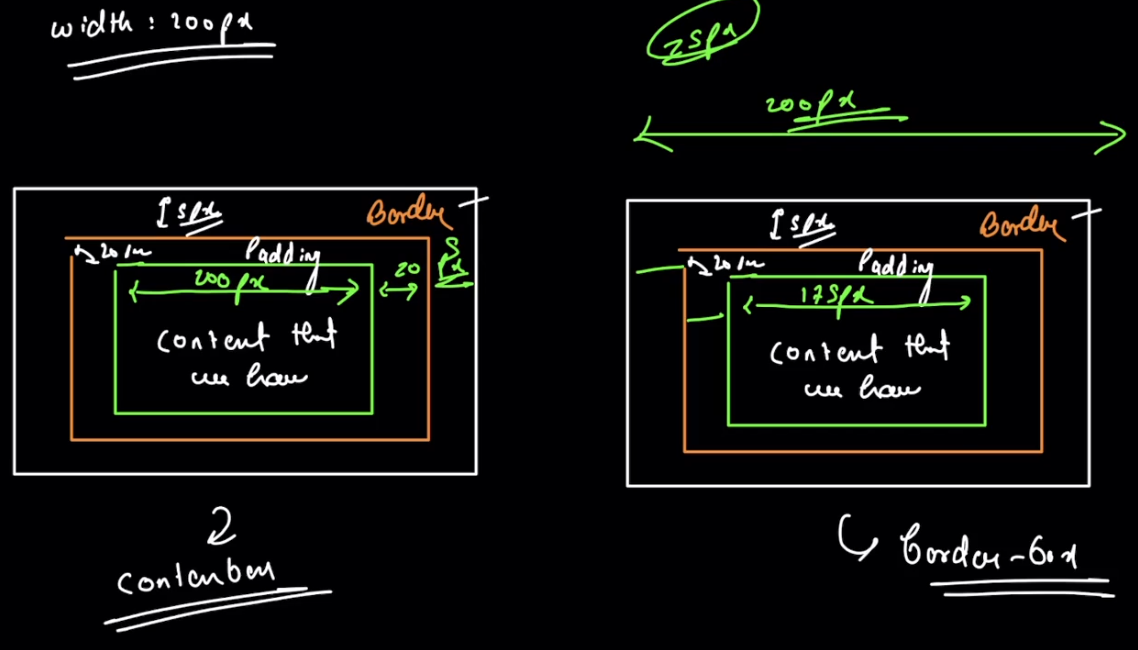 width : 200px
25px
200px
5px
Border
20px
Padding
200px
20
5
px
content that
we have
contentbox
5px
Border
20px
Padding
175px
content that
we have
border-box